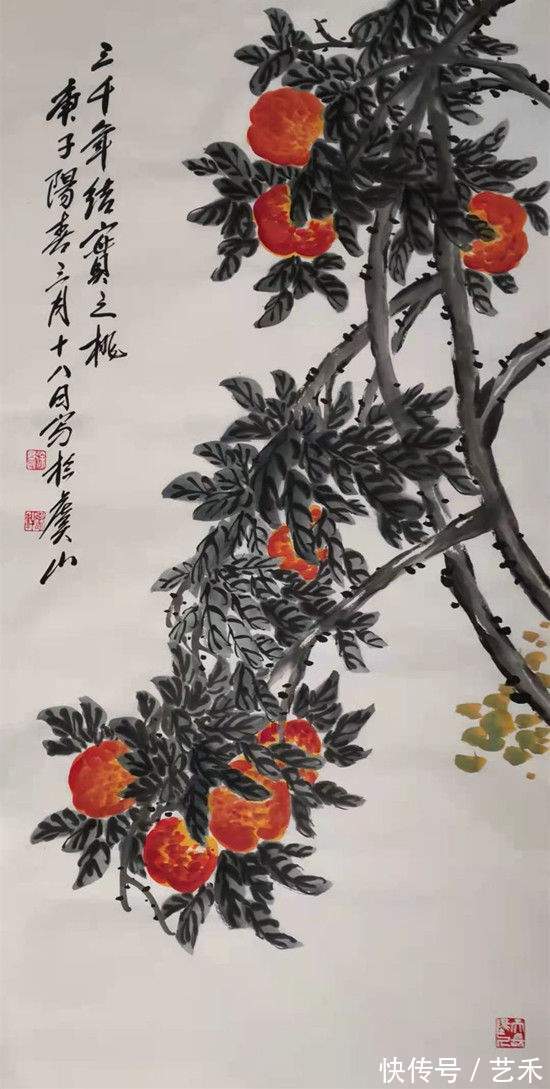 三千年结實之桃
庚子陽春三月十八日写於虞山
快传号／艺禾